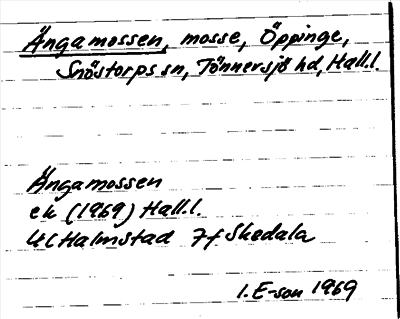 Ängamossen, mosse, Öppinge,
Snöstorps sn, Tönnersjö hd, Hall.l.
Ängamossen
ek (1969) Hall.l.
4C Halmstad 7f Skedala
I. E-son 1969